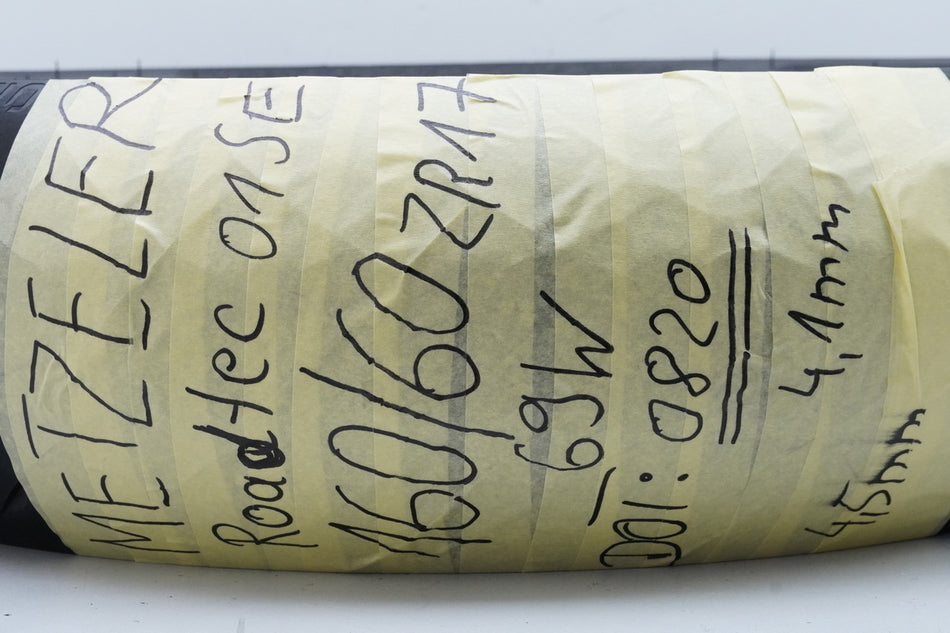 METZELER
Roadtec 01 SE
160/60 ZR17
69W
DOT: 0820
4,1mm
4,5mm